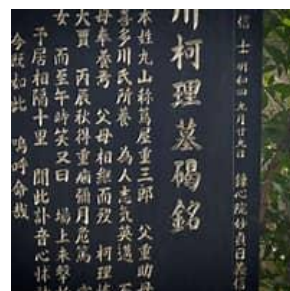 信士 明和四 九月廿九日 鏡心院妙貞日義信
川柯理墓碣銘
本姓丸山称蔦屋重三郎 父重助母
喜多川氏所養 為人志気英邁 不
母奉養焉 父母相継而歿 柯理恪
大賈 丙辰秋得重痼弥月危篤
女 而至午時笑又曰 場上未撃柝
予居相隔十里 聞此訃音心怵
今銘如此 嗚呼命哉